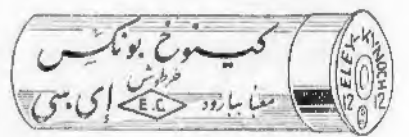 کینوخ بونکس
خرطوش
معبا ببارود E.C. إی سی
ELEY-KYNOCH
12 12